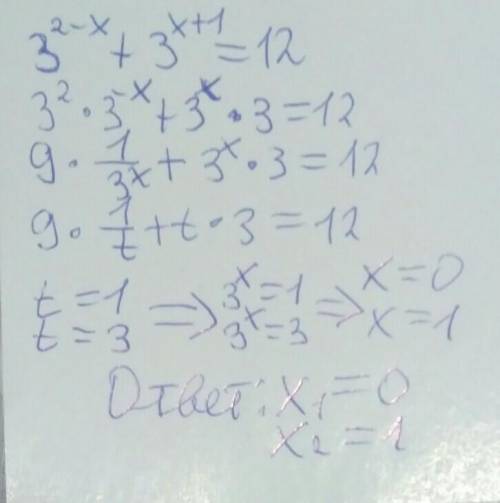 3^{2-x} + 3^{x+1} = 12
3^2 · 3^{-x} + 3^x · 3 = 12
9 · \frac{1}{3^x} + 3^x · 3 = 12
9 · \frac{1}{t} + t · 3 = 12
t = 1 ⇒ 3^x = 1 ⇒ x = 0
t = 3 3^x = 3 x = 1
Ответ: x_1 = 0
x_2 = 1